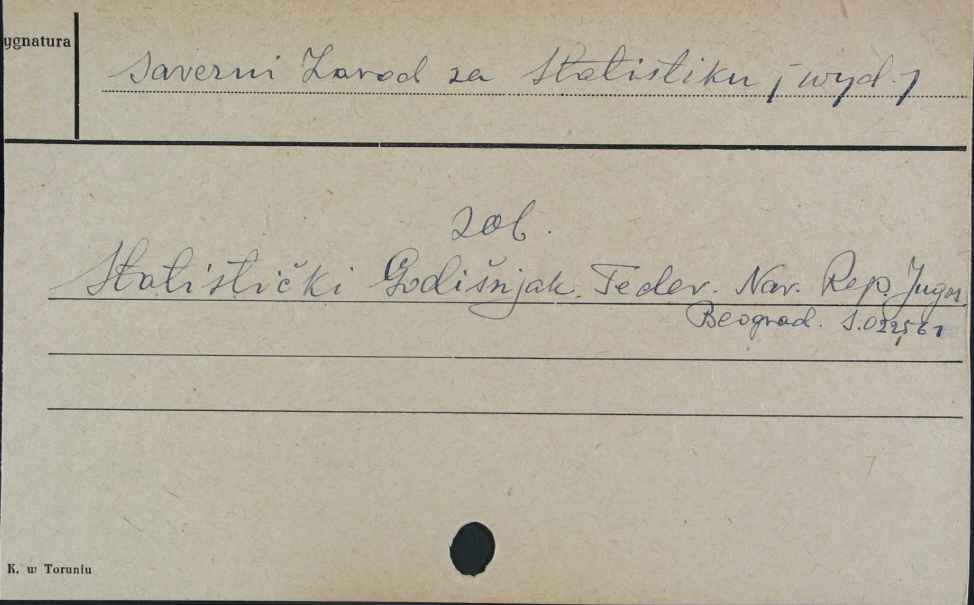 ygnatura
Saverni Zavod za Statistiku (wyd.)
zob.
Statistički Godišnjak. Feder. Nar. Rep. Jugos.
Beograd. S.022561
K. w Toruniu